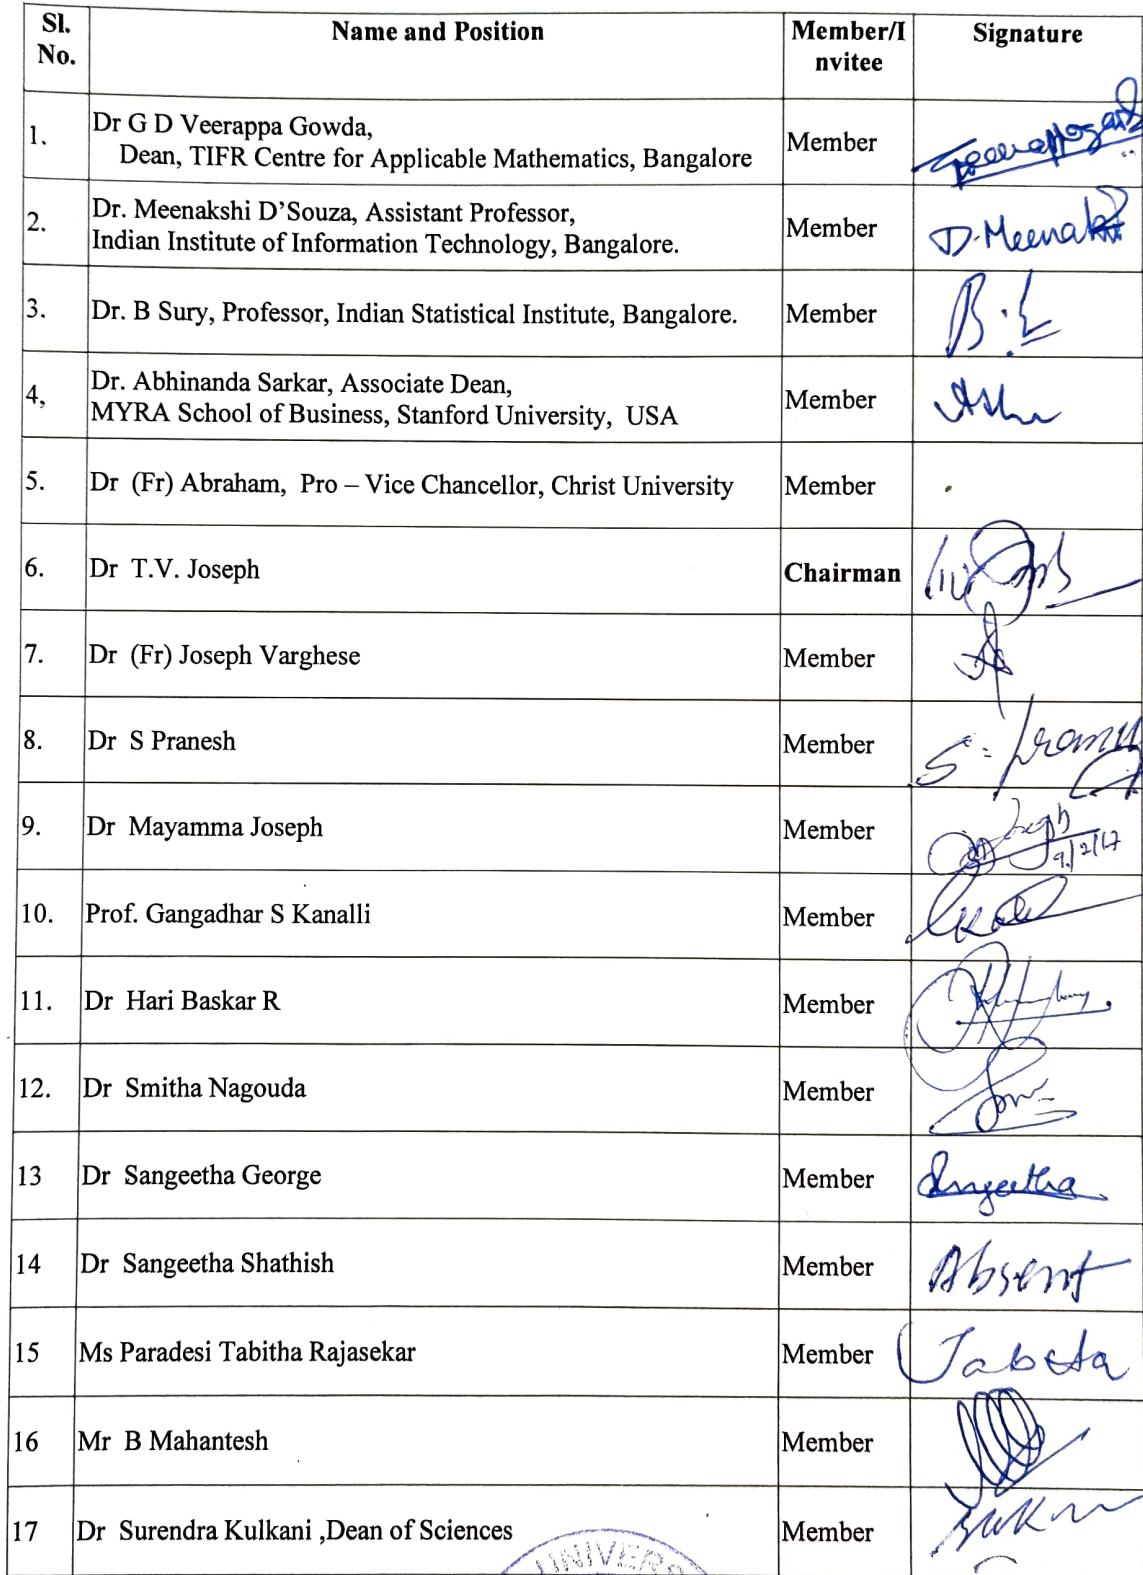 Sl. No. Name and Position Member/Invitee Signature
1. Dr G D Veerappa Gowda,
Dean, TIFR Centre for Applicable Mathematics, Bangalore Member
2. Dr. Meenakshi D'Souza, Assistant Professor,
Indian Institute of Information Technology, Bangalore. Member D. Meenakshi
3. Dr. B Sury, Professor, Indian Statistical Institute, Bangalore. Member
4, Dr. Abhinanda Sarkar, Associate Dean,
MYRA School of Business, Stanford University, USA Member
5. Dr (Fr) Abraham, Pro – Vice Chancellor, Christ University Member
6. Dr T.V. Joseph Chairman
7. Dr (Fr) Joseph Varghese Member
8. Dr S Pranesh Member
9. Dr Mayamma Joseph Member 9/2/17
10. Prof. Gangadhar S Kanalli Member
11. Dr Hari Baskar R Member
12. Dr Smitha Nagouda Member
13 Dr Sangeetha George Member Sangeetha
14 Dr Sangeetha Shathish Member Absent
15 Ms Paradesi Tabitha Rajasekar Member
16 Mr B Mahantesh Member
17 Dr Surendra Kulkani ,Dean of Sciences Member